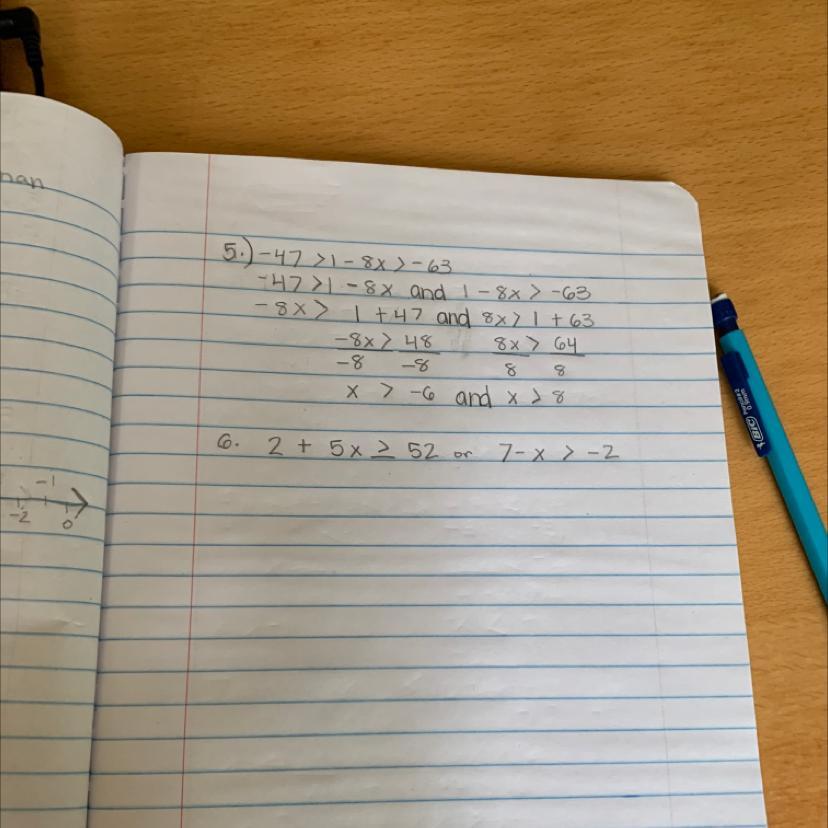 nan
5.) -47 > 1 - 8x > -63
-47 > 1 - 8x and 1 - 8x > -63
-8x > 1 + 47 and 8x > 1 + 63
-8x > 48 8x > 64
-8 -8 8 8
x > -6 and x > 8
6. 2 + 5x ≥ 52 or 7 - x > -2
-1
-2 0
BIC